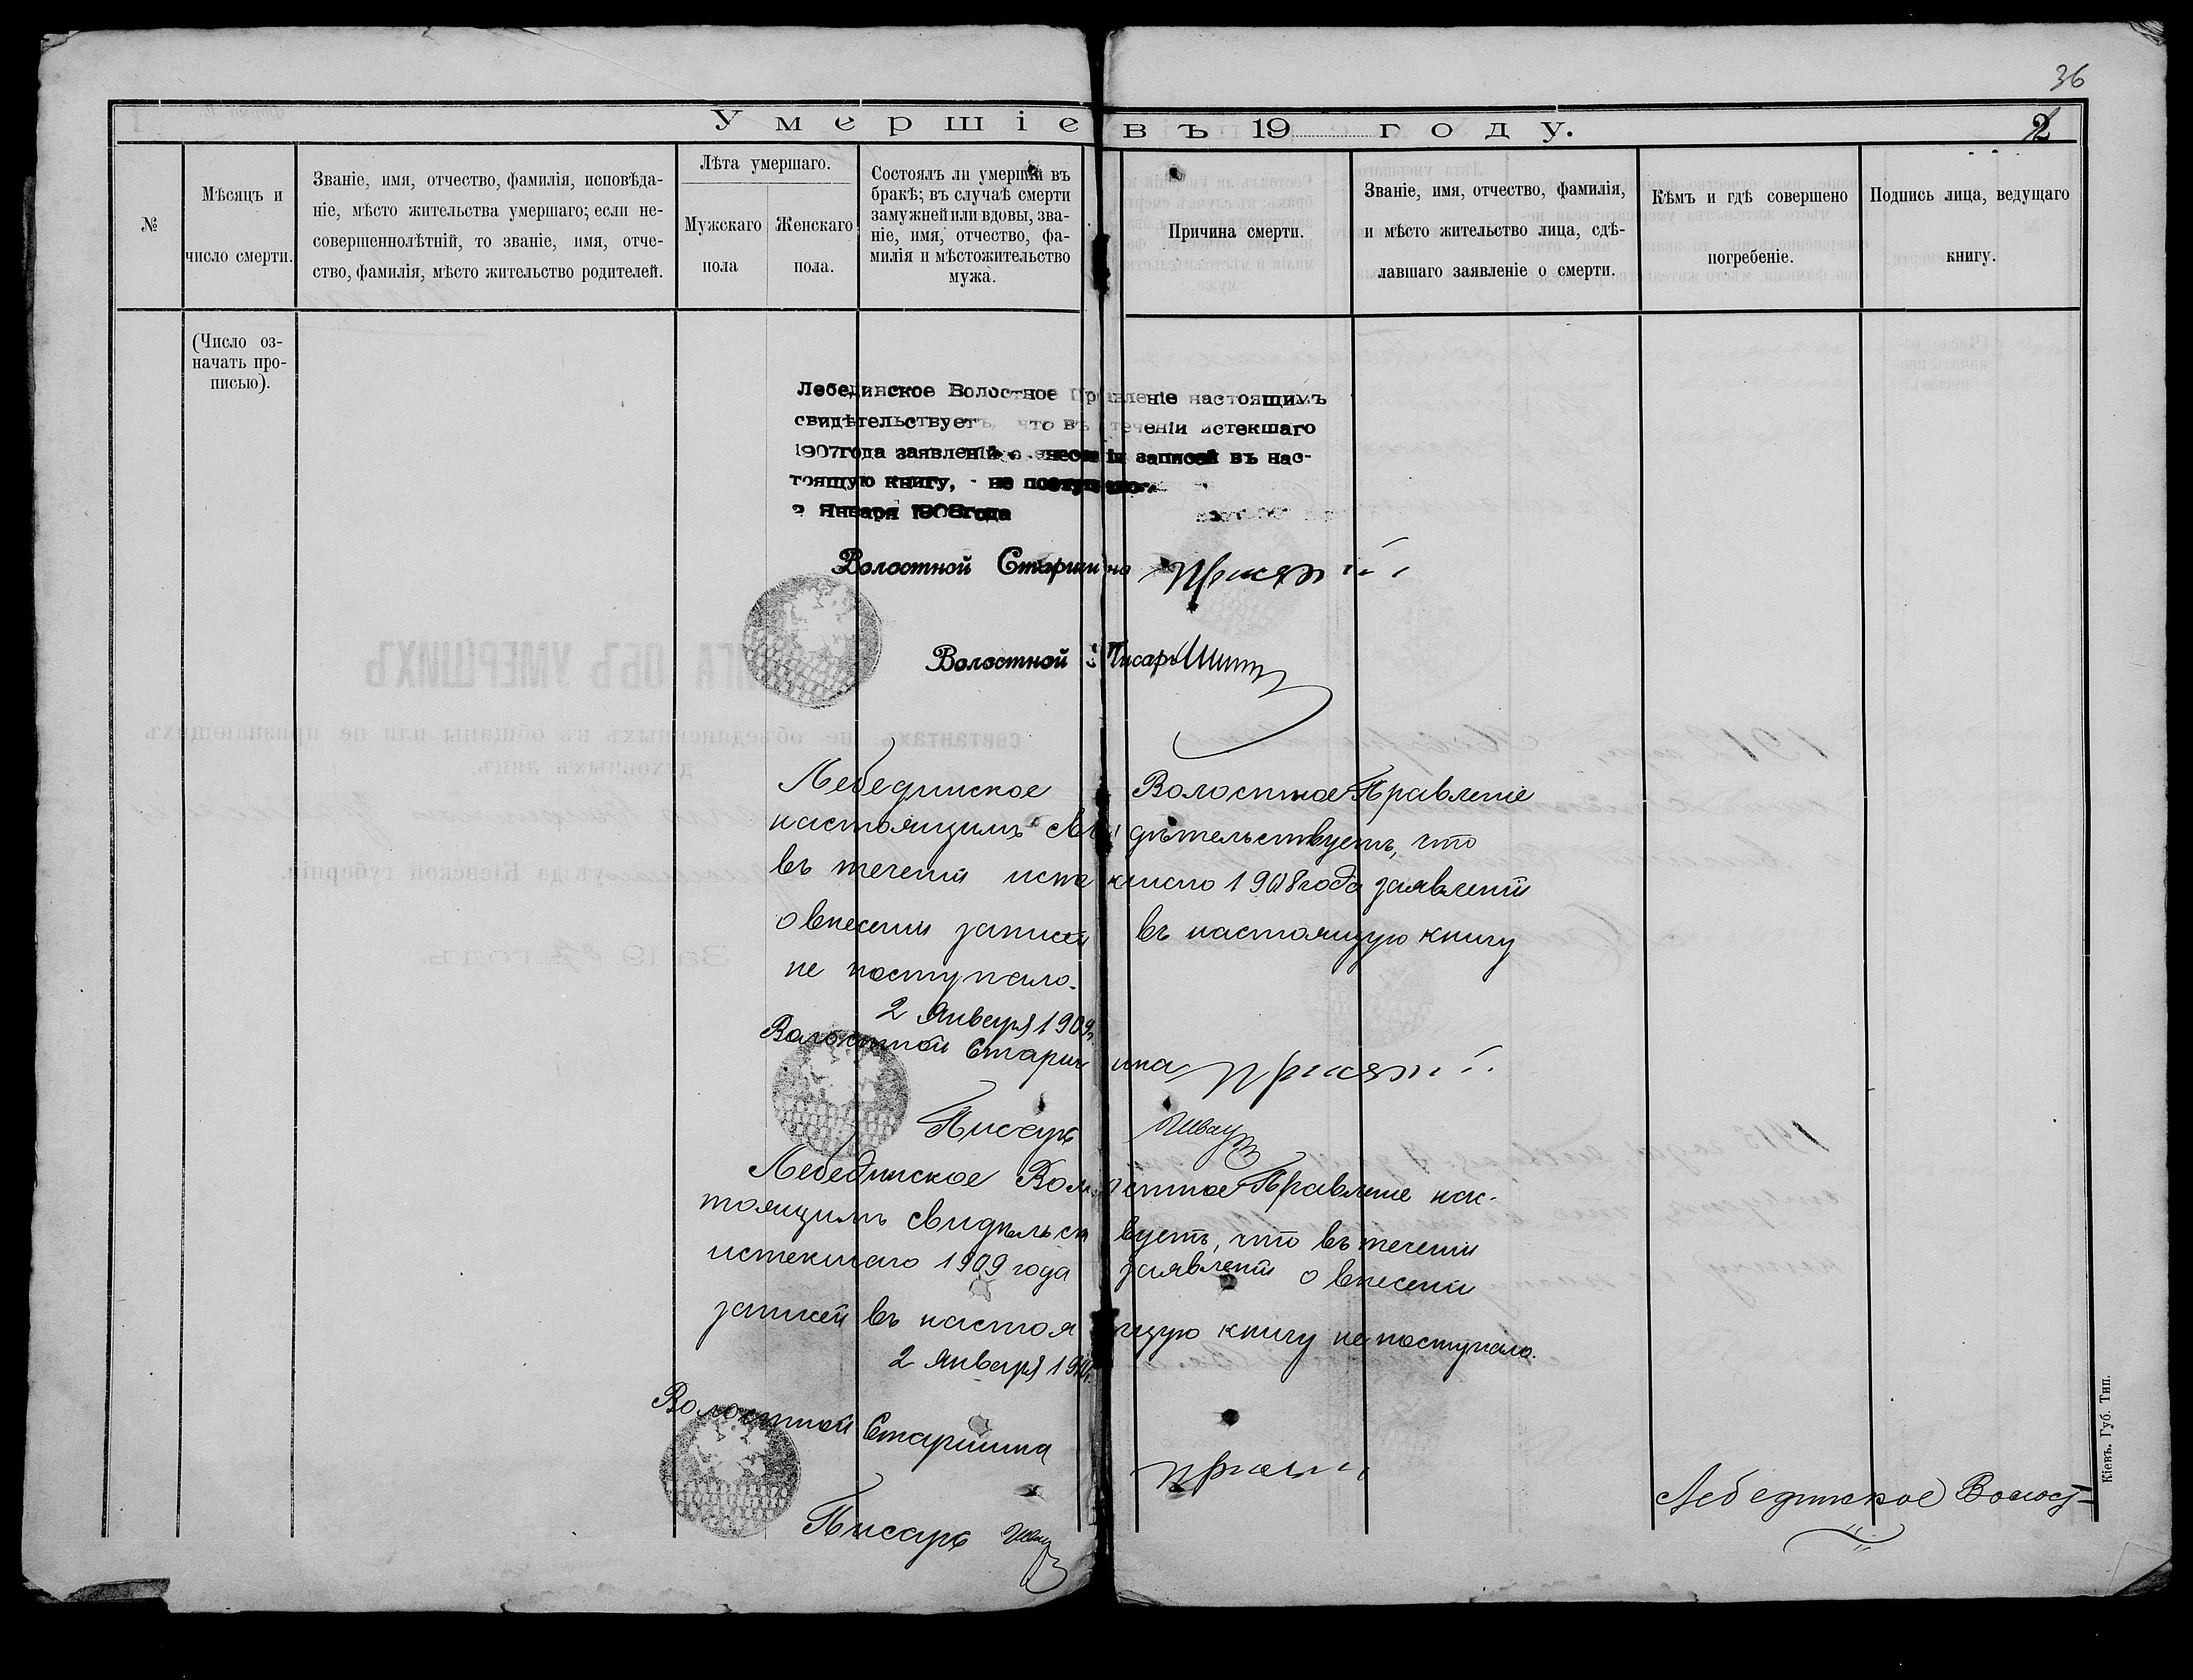 36
Умершіе въ 19 году.
2
№
Мѣсяцъ и
число смерти.
Званіе, имя, отчество, фамилія, исповѣда-
ніе, мѣсто жительства умершаго; если не-
совершеннолѣтній, то званіе, имя, отче-
ство, фамилія, мѣсто жительство родителей.
Лѣта умершаго.
Мужскаго
пола
Женскаго
пола.
Состоялъ ли умершій въ
бракѣ; въ случаѣ смерти
замужней или вдовы, зва-
ніе, имя, отчество, фа-
милія и мѣстожительство
мужа.
Причина смерти.
Званіе, имя, отчество, фамилія,
и мѣсто жительство лица, сдѣ-
лавшаго заявленіе о смерти.
Кѣмъ и гдѣ совершено
погребеніе.
Подпись лица, ведущаго
книгу.
(Число оз-
начать про-
писью).
Лебединское Волостное Правленіе настоящимъ
свидѣтельствуетъ, что въ теченіи истекшаго
1907года заявленій о внесеніи записей въ нас-
тоящую книгу, не поступало.
2 Января 1908года
Волостной Старшина
Волостной Писарь
Лебединское Волостное Правленіе
настоящимъ свидѣтельствуетъ, что
въ теченіи истекшаго 1908 года заявленій
о внесеніи записей въ настоящую книгу
не поступало.
2 Января 1909г.
Волостной Старшина
Писарь
Лебединское Волостное Правленіе нас-
тоящимъ свидѣтельствуетъ, что въ теченіи
истекшаго 1909 года заявленій о внесеніи
записей въ настоящую книгу не поступало.
2 Января
Волостной Старшина
Писарь
Лебединское Волост-
Кіевъ. Губ. Тип.